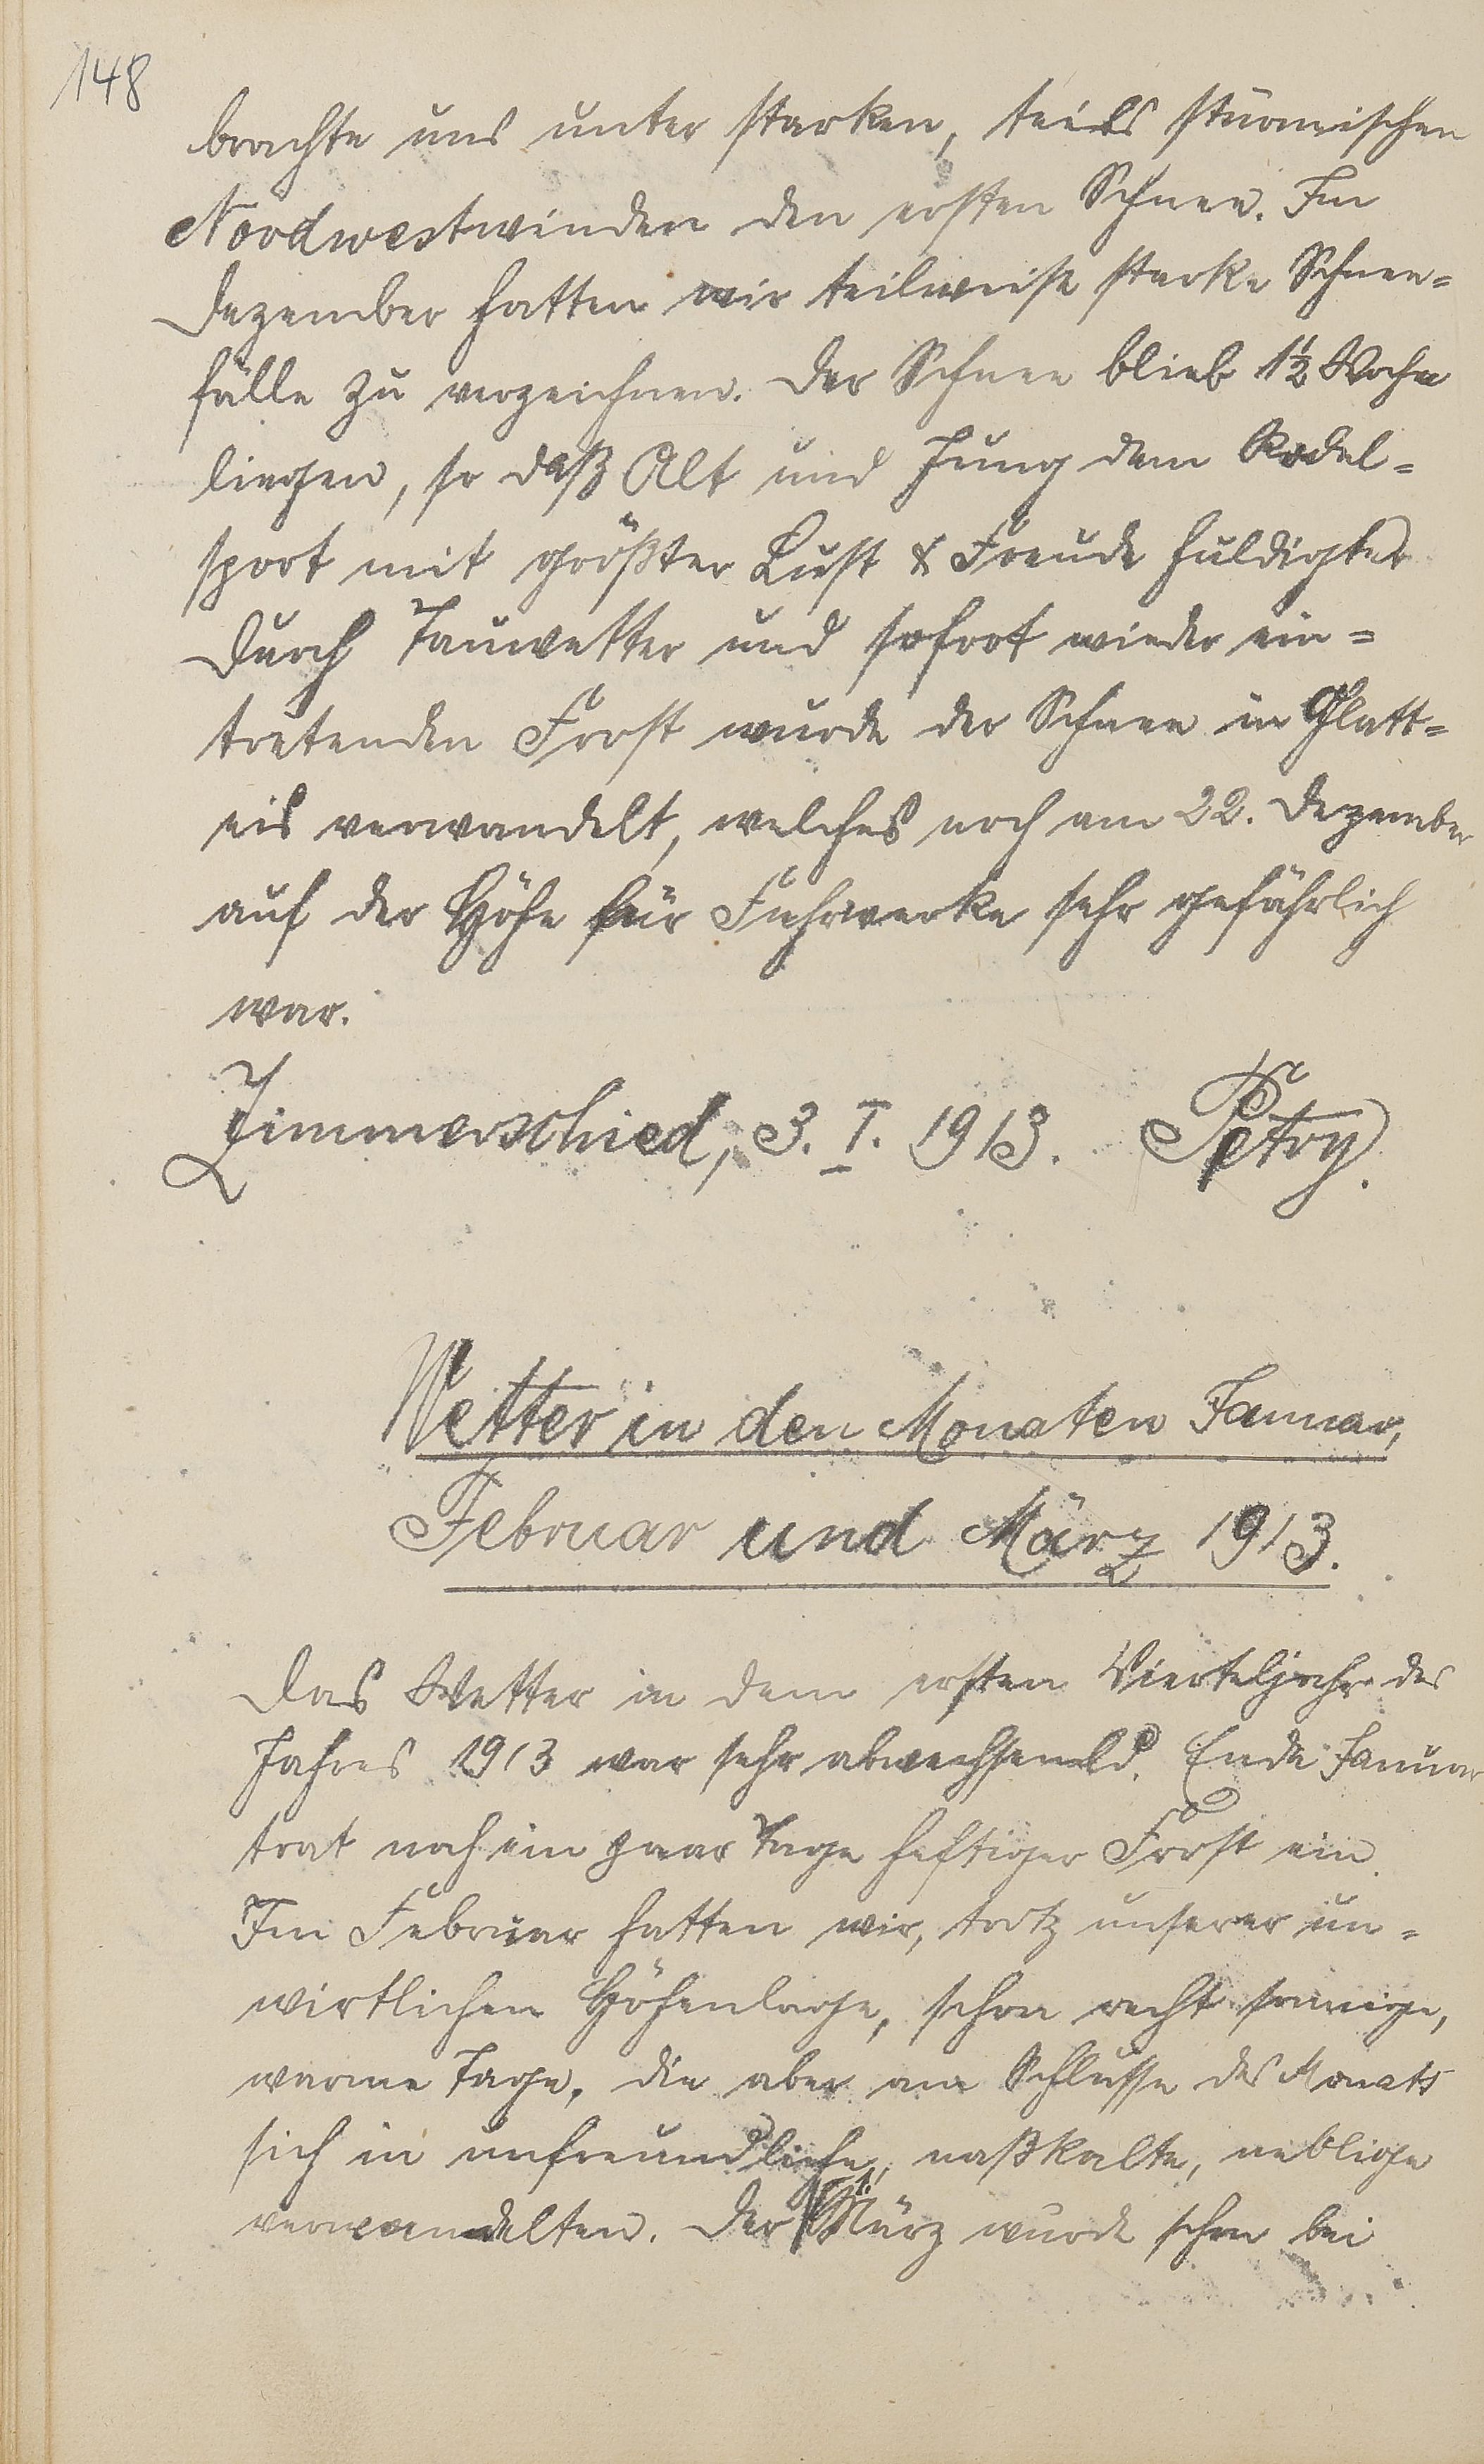 148
brachte uns unter starken, teils stürmischen
Nordwestwinden den ersten Schnee. Im
Dezember hatten wir teilweise starke Schnee=
fälle zu verzeichnen. Der Schnee blieb 1½ Woche
liegen, so daß Alt und Jung dem Rodel=
sport mit größter Lust & Freude huldigten
Durch Tauwetter und sofort wieder ein=
tretenden Frost wurde der Schnee in Glatt=
eis verwandelt, welches noch am 22. Dezember
auf der Höhe für Fuhrwerke sehr gefährlich
war.
Zimmerschied, 3. I. 1913. Petry.
Wetter in den Monaten Januar,
Februar und März 1913.
Das Wetter in dem ersten Vierteljahr des
Jahres 1913 war sehr abwechselnd. Ende Januar
trat noch ein paar Tage heftiger Frost ein.
Im Februar hatten wir, trotz unserer un=
wirtlichen Höhenlage, schon recht sonnige,
warme Tage, die aber am Schlusse des Monats
sich in unfreundliche, naßkalte, neblige
verwandelten. Der 1. März wurde schon bei